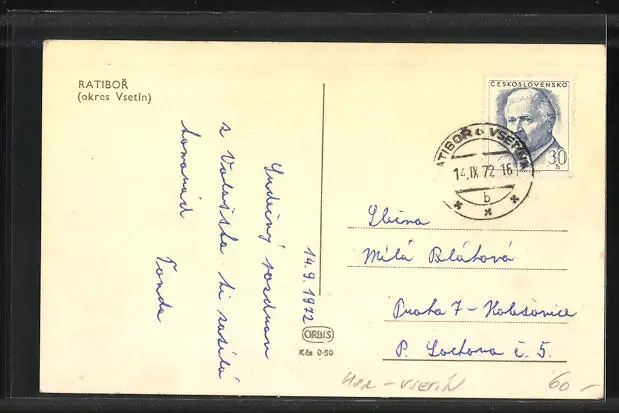 RATIBOŘ
(okres Vsetín)
14.9.1972
Srdečný pozdrav
z Valašska ti zasílá
kamarád
Tonda
ČESKOSLOVENSKO
30
h
RATIBOŘ u VSETÍNA
14.IX 72 16
b
Slečna
Milá Bláhová
Praha 7 - Holešovice
P. č. 5.
ORBIS
Kčs 0·50
VSETÍN
60 -